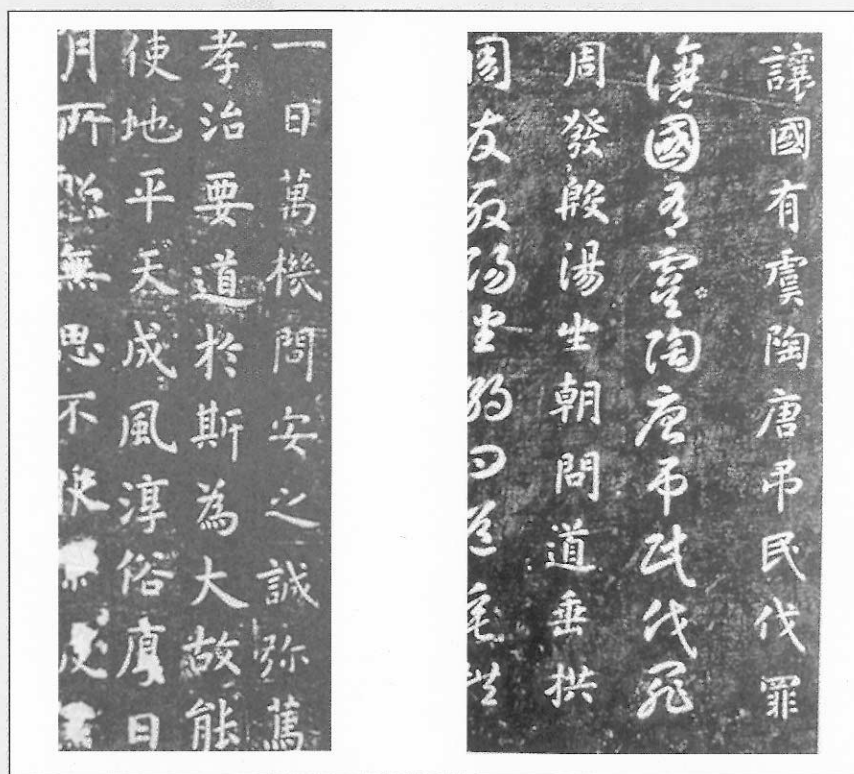 讓國有虞陶唐吊民伐罪
讓國有虞陶唐吊民伐罪
周發殷湯坐朝問道垂拱
周發殷湯坐朝問道垂拱
一日萬機問安之誠弥萬
孝治要道於斯為大故能
使地平天成風淳俗厚日
月所無思不